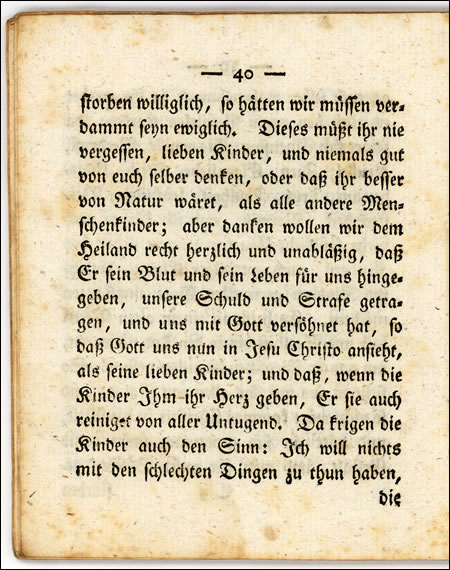 — 40 —
storben williglich, so hätten wir müssen ver-
dammt seyn ewiglich. Dieses müßt ihr nie
vergessen, lieben Kinder, und niemals gut
von euch selber denken, oder daß ihr besser
von Natur wäret, als alle andere Men-
schenkinder; aber danken wollen wir dem
Heiland recht herzlich und unabläßig, daß
Er sein Blut und sein Leben für uns hinge-
geben, unsere Schuld und Strafe getra-
gen, und uns mit Gott versöhnet hat, so
daß Gott uns nun in Jesu Christo ansieht,
als seine lieben Kinder; und daß, wenn die
Kinder Ihm ihr Herz geben, Er sie auch
reiniget von aller Untugend. Da krigen die
Kinder auch den Sinn: Ich will nichts
mit den schlechten Dingen zu thun haben,
die